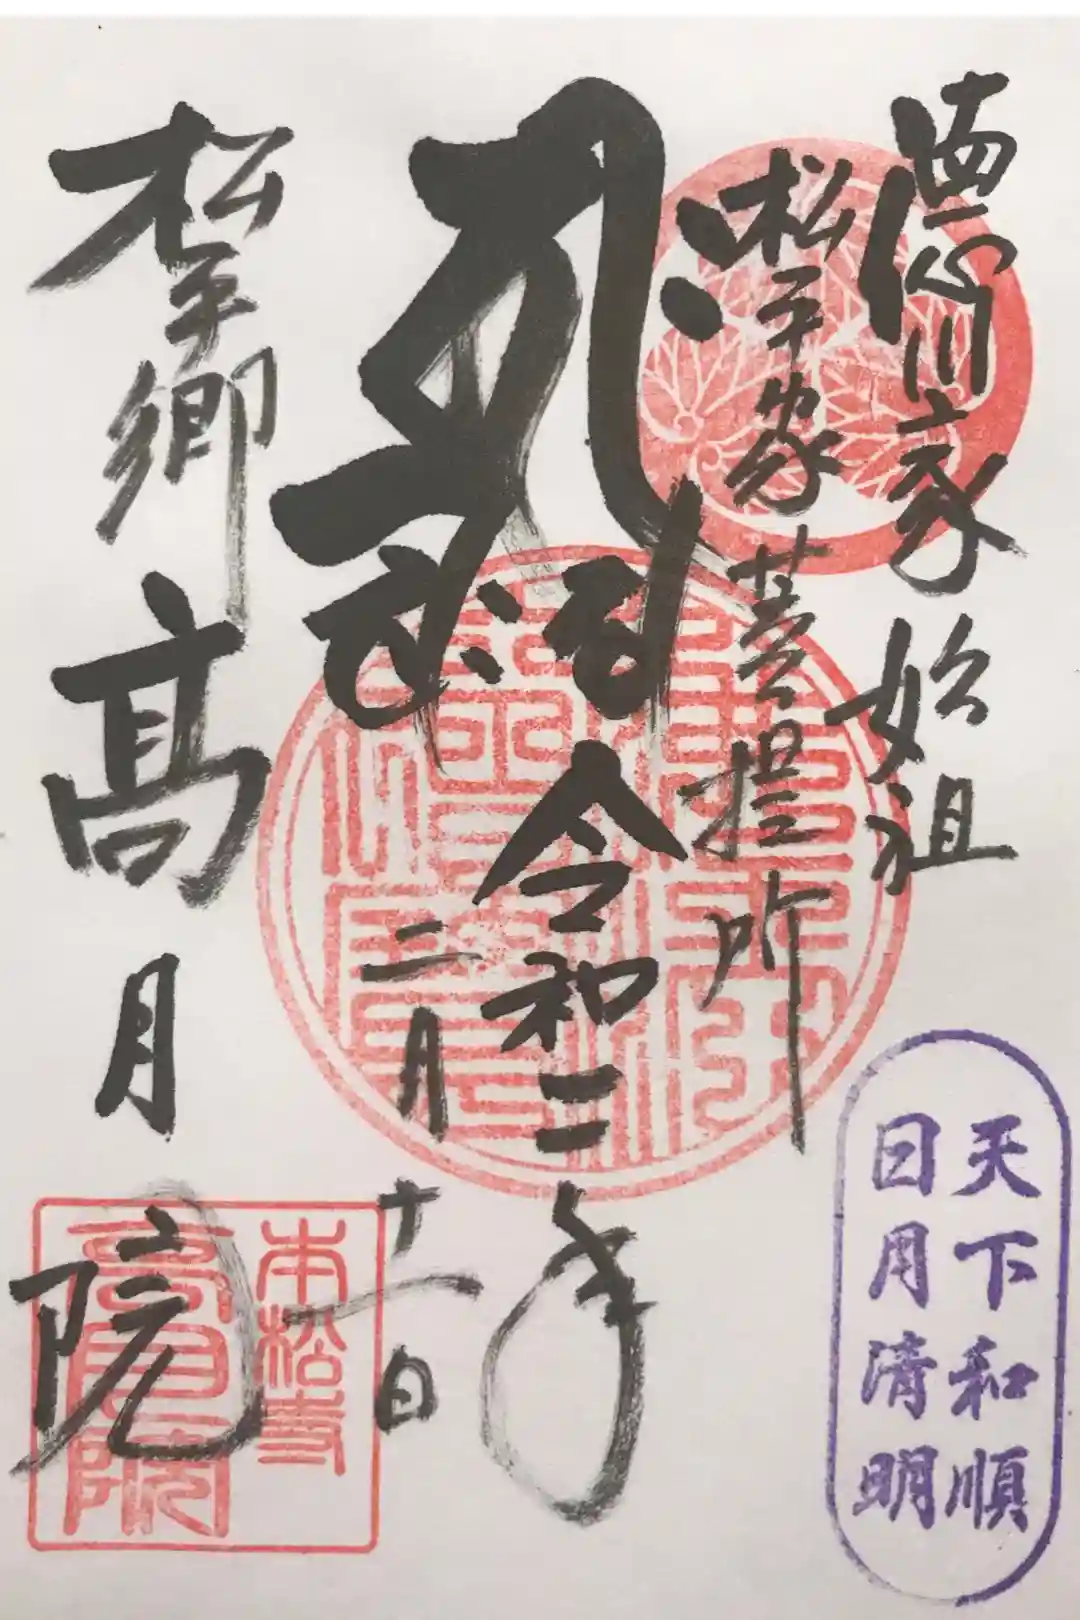 徳川家始祖
松平家菩提所
令和二年
二月十一日
松平郷
高月院
天下和順
日月清明
本松寺
高月院